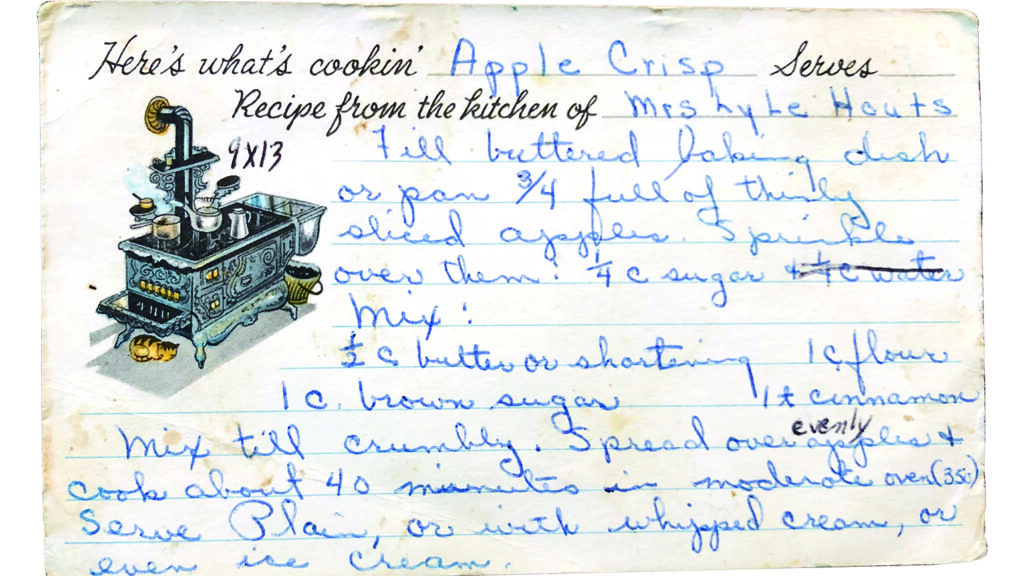 Here's what's cookin' Apple Crisp Serves
Recipe from the kitchen of Mrs Lyle Houts
9X13
Fill buttered baking dish
or pan 3/4 full of thinly
sliced apples. Sprinkle
over them: 1/4 c sugar + 1/4 c water
Mix:
1/2 c butter or shortening 1 c flour
1 c. brown sugar 1 t cinnamon
evenly
Mix till crumbly. Spread over apples +
cook about 40 minutes in moderate oven (350)
Serve Plain, or with whipped cream, or
even ice cream.